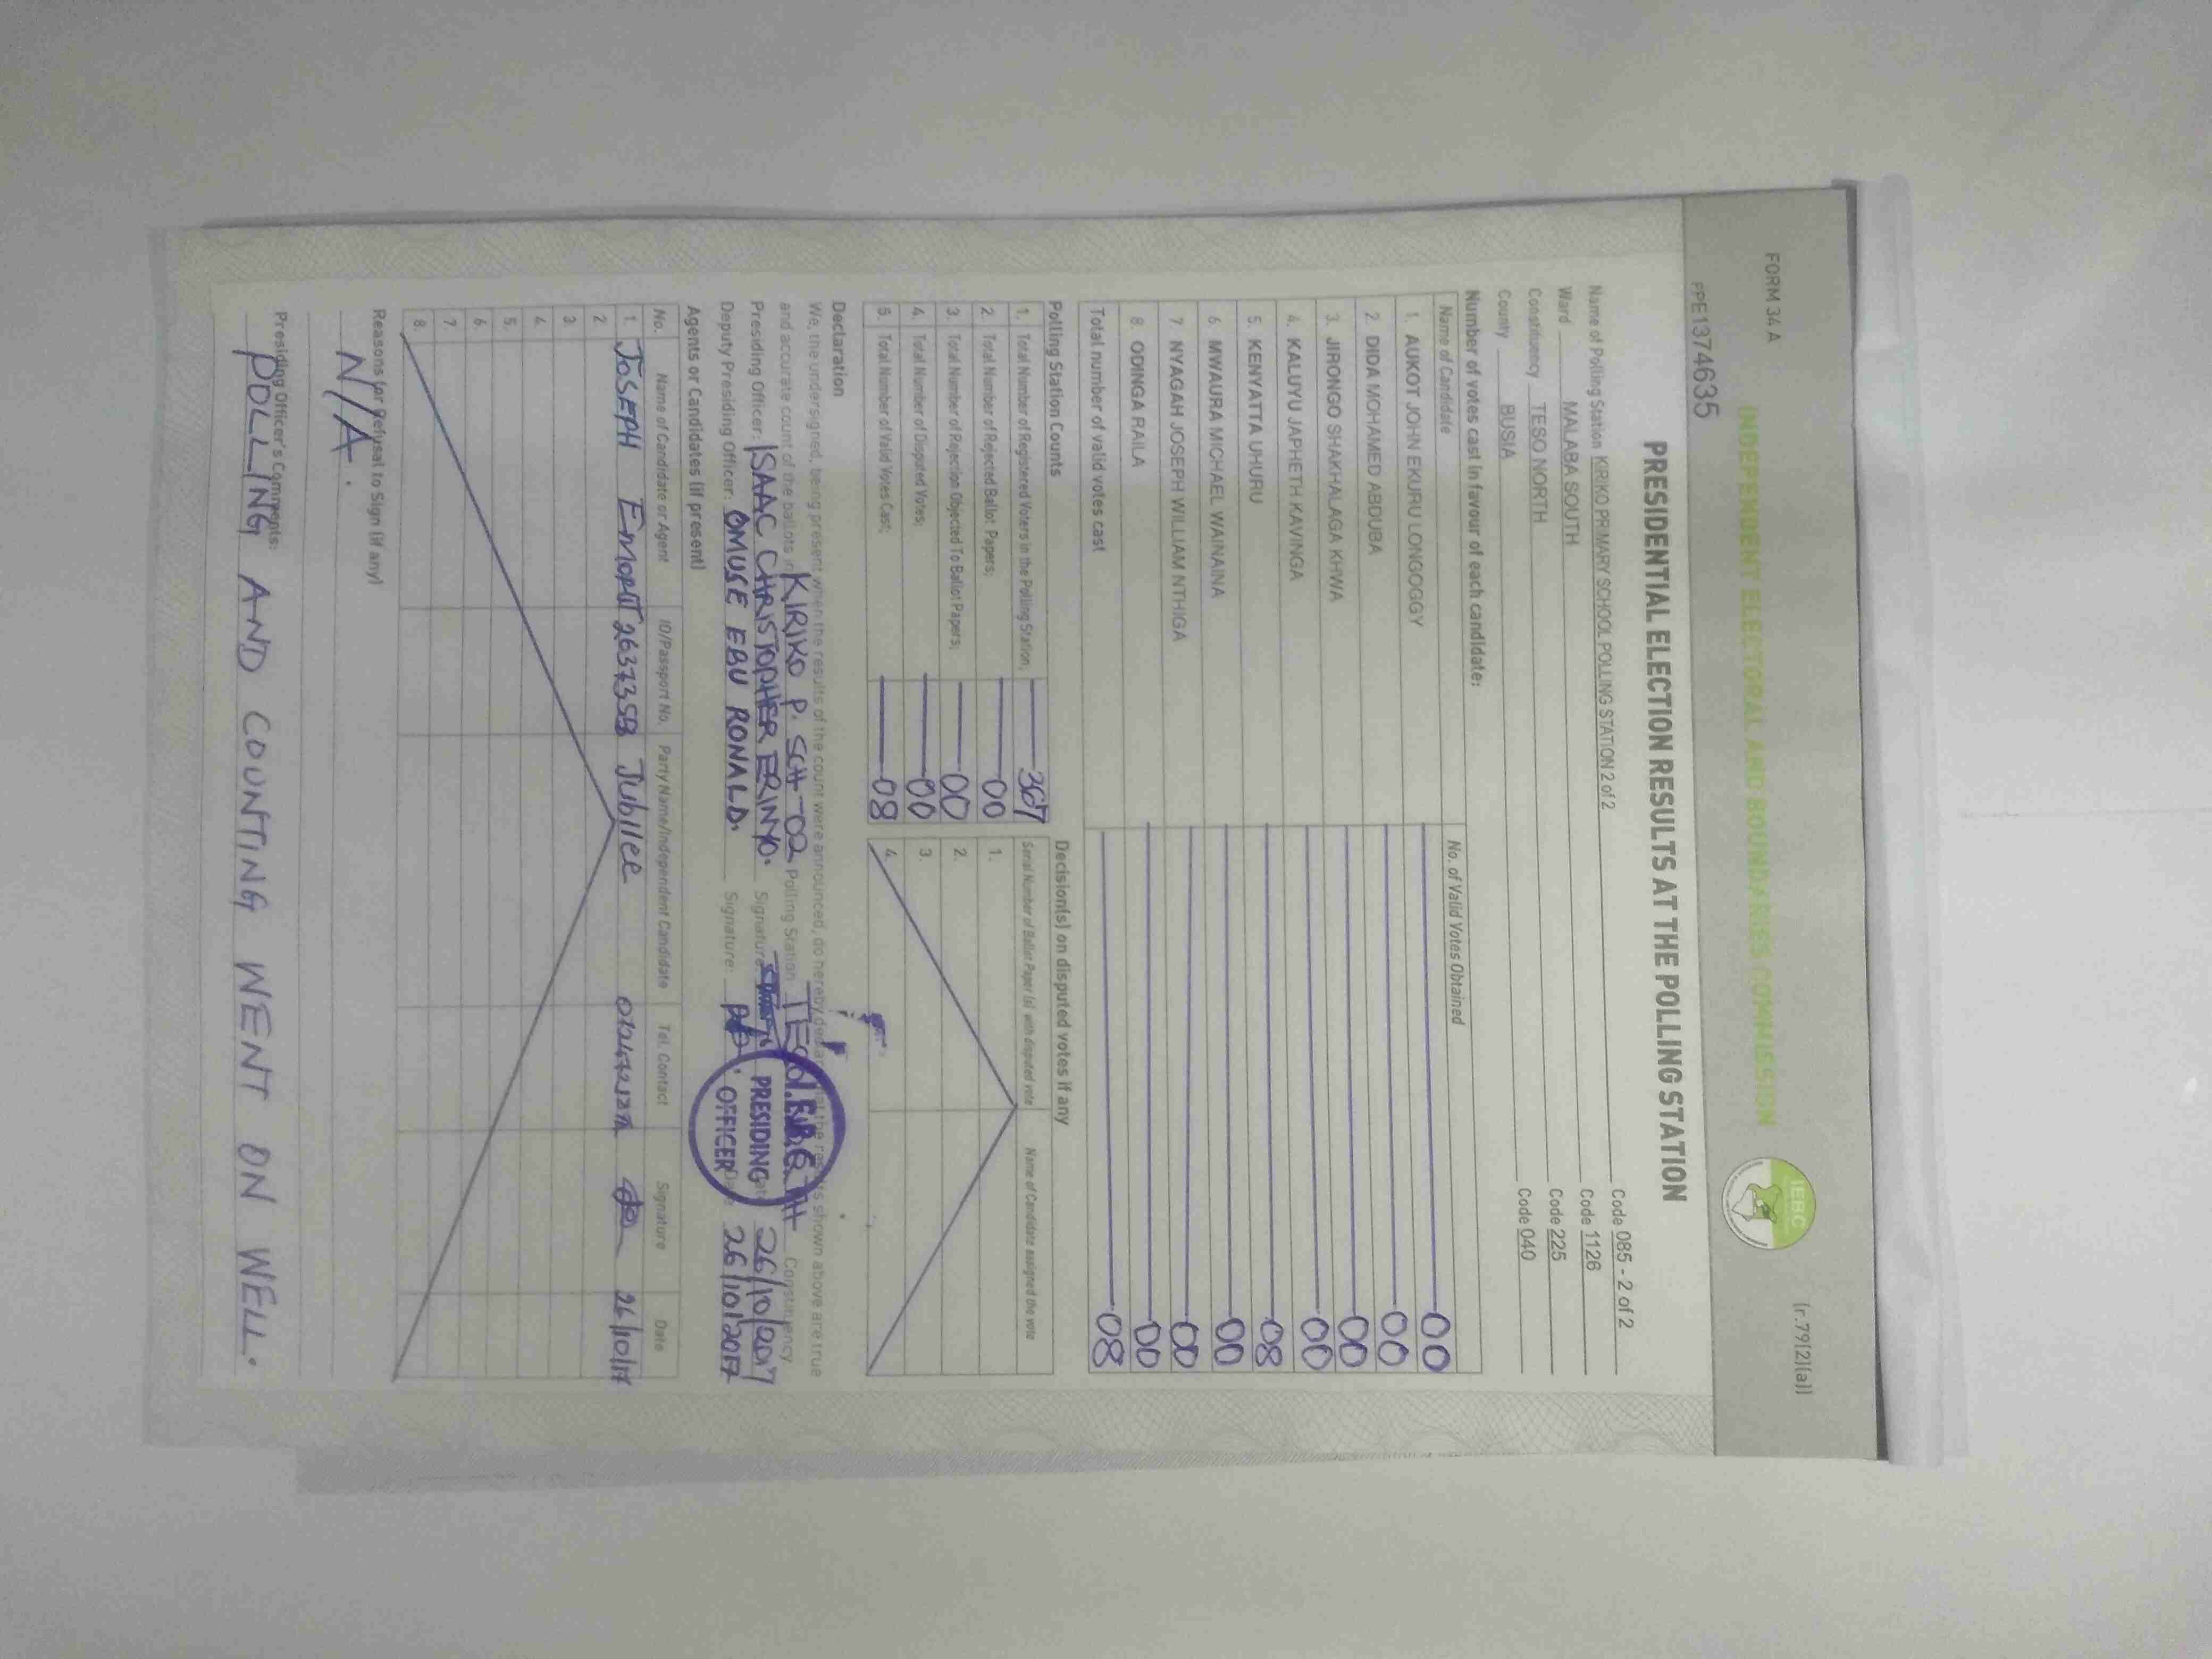 FORM 34 A
(r.79(2)(a))
INDEPENDENT ELECTORAL AND BOUNDARIES COMMISSION
IEBC
PPE1374635
PRESIDENTIAL ELECTION RESULTS AT THE POLLING STATION
Name of Polling Station KIRIKO PRIMARY SCHOOL POLLING STATION 2 of 2 Code 085 - 2 of 2
Ward MALABA SOUTH Code 1126
Constituency TESO NORTH Code 225
County BUSIA Code 040
Number of votes cast in favour of each candidate:
Name of Candidate No. of Valid Votes Obtained
1. AUKOT JOHN EKURU LONGOGGY 00
2. DIDA MOHAMED ABDUBA 00
3. JIRONGO SHAKHALAGA KHWA 00
4. KALUYU JAPHETH KAVINGA 00
5. KENYATTA UHURU 08
6. MWAURA MICHAEL WAINAINA 00
7. NYAGAH JOSEPH WILLIAM NTHIGA 00
8. ODINGA RAILA 00
Total number of valid votes cast 08
Polling Station Counts
1. Total Number of Registered Voters in the Polling Station; 367
2. Total Number of Rejected Ballot Papers; 00
3. Total Number of Rejection Objected To Ballot Papers; 00
4. Total Number of Disputed Votes; 00
5. Total Number of Valid Votes Cast; 08
Decision(s) on disputed votes if any
Serial Number of Ballot Paper (s) with disputed vote Name of Candidate assigned the vote
1.
2.
3.
4.
Declaration
We, the undersigned, being present when the results of the count were announced, do hereby declare that the results shown above are true
and accurate count of the ballots in KIRIKO P. SCH-02 Polling Station Constituency
Presiding Officer: ISAAC CHRISTOPHER ERINYO. Signature: 26/10/2017
Deputy Presiding Officer: OMUSE EBU RONALD. Signature: Date 26/10/2017
I.E.B.C
PRESIDING
OFFICER
Agents or Candidates (if present)
No. Name of Candidate or Agent ID/Passport No. Party Name/Independent Candidate Tel. Contact Signature Date
1. JOSEPH Jubilee 26/10/17
2
3
4
5.
6
7
8.
Reasons for Refusal to Sign (if any)
N/A.
Presiding Officer's Comments:
POLLING AND COUNTING WENT ON WELL.